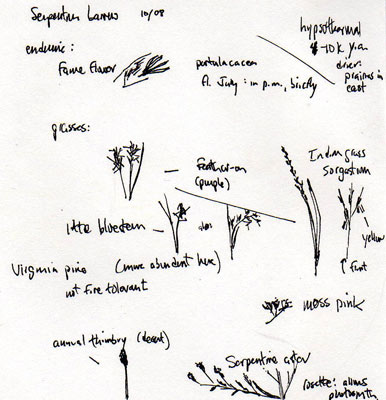 Serpentine Barrens 10/08
endemic:
Fame flower
portulacacea
fl. July: in p.m., briefly
hypsothermal
4-10K y.a.
drier:
prairies in
east
grasses:
(purple)
Indian grass
Sorgastrum
yellow
little bluestem
also
fruit
Virginia pine (more abundant here)
not fire tolerant
moss pink
annual (desert)
Serpentine aster
rosette: allows